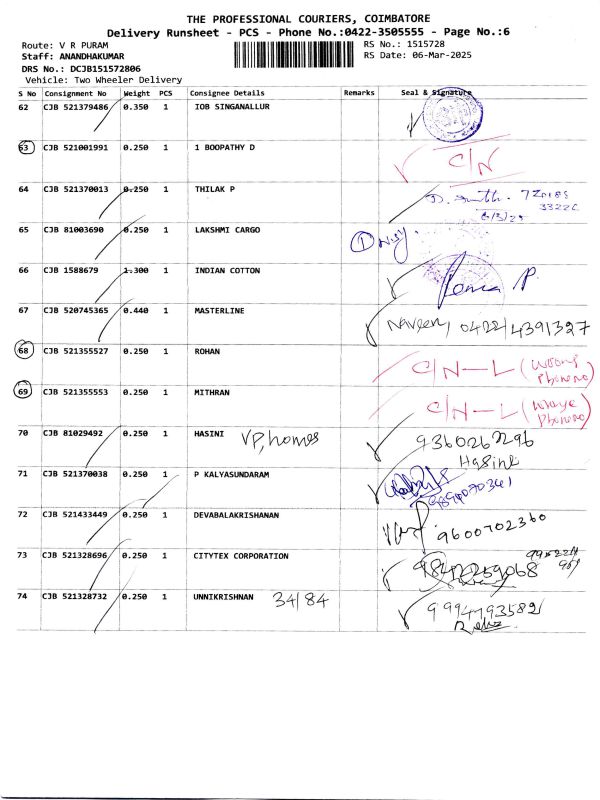 THE PROFESSIONAL COURIERS, COIMBATORE
Delivery Runsheet - PCS - Phone No.:0422-3505555 - Page No.:6
Route: V R PURAM
RS No.: 1515728
Staff: ANANDHAKUMAR
RS Date: 06-Mar-2025
DRS No.: DCJB151572806
Vehicle: Two Wheeler Delivery
S No Consignment No Weight PCS Consignee Details Remarks Seal & Signature
62 CJB 521379486 0.350 1 IOB SINGANALLUR
63 CJB 521001991 0.250 1 1 BOOPATHY D C/N
64 CJB 521370013 0.250 1 THILAK P
6/3/25
65 CJB 81003690 0.250 1 LAKSHMI CARGO
66 CJB 1588679 1.300 1 INDIAN COTTON
67 CJB 520745365 0.440 1 MASTERLINE Naveen, 0422/4391327
68 CJB 521355527 0.250 1 ROHAN C/N-L (Wrong
Phone no)
69 CJB 521355553 0.250 1 MITHRAN C/N-L (
Phone no)
70 CJB 81029492 0.250 1 HASINI VP, homes 9360262296
Hasini
71 CJB 521370038 0.250 1 P KALYASUNDARAM
72 CJB 521433449 0.250 1 DEVABALAKRISHANAN 9600702360
73 CJB 521328696 0.250 1 CITYTEX CORPORATION 9842259068
74 CJB 521328732 0.250 1 UNNIKRISHNAN 34/84 9994793582